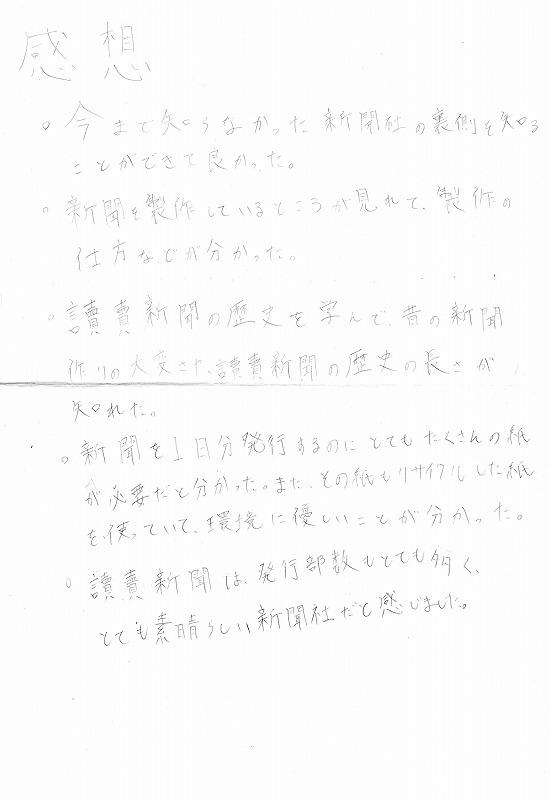 感想
○今まで知らなかった新聞社の裏側を知る
ことができて良かった。
○新聞を製作しているところが見れて、製作の
仕方などが分かった。
○讀賣新聞の歴史を学んで、昔の新聞
作りの大変さや、讀賣新聞の歴史の長さが
知れた。
○新聞を1日分発行するのにとてもたくさんの紙
が必要だと分かった。また、その紙もリサイクルした紙
を使っていて、環境に優しいことが分かった。
○讀賣新聞は、発行部数もとても多く、
とても素晴らしい新聞社だと感じました。